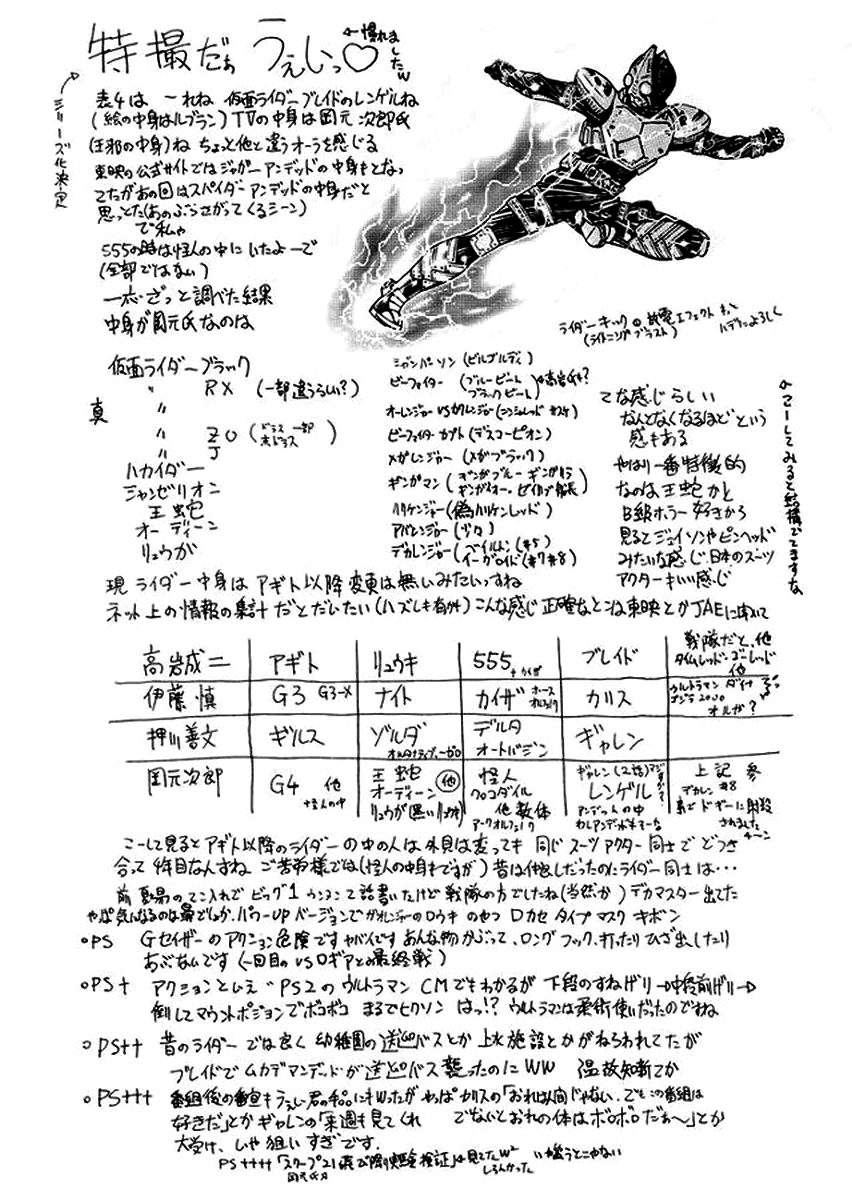 特撮だぁ うぇしっ♡
←慣れましたw
シリーズ化決定
表4は これね 仮面ライダーブレイドのレンゲルね
(絵の中身はルブラン) TVの中身は岡元 次郎氏
(王邪の中身)ね ちょっと他と違うオーラを感じる
東映の公式サイトではジャガーアンデッドの中身もとなっ
てたがあの回はスパイダーアンデッドの中身だと
思っとた(あのぶらさがってくるシーン)
で私ゃ
555の時は怪人の中にいたよーで
(全部ではない)
一応ざっと調べた結果
中身が岡元氏なのは
ライダーキックの放電エフェクト
(ライトニングブラスト) ハデでよろしく
仮面ライダーブラック
〃 RX (一部違うらしい?)
真 〃
〃 ZO (ドラス一部)
〃 J
ハカイダー
シャンゼリオン
王蛇
オーディーン
リュウガ
ジャンパーソン(ビルゴルディ)
ビーファイター(ブルービート ブラックビート)←高岩氏も?
オーレンジャーVSカクレンジャー(ニンジャレッド
ビーファイターカブト(デスコーピオン)
メガレンジャー(メガブラック)
ギンガマン(ギンガブルー ギンガ
ハリケンジャー(偽ハリケンレッド)
アバレンジャー(少々)
デカレンジャー(ベイルドン(#5)
イーガロイド(#7#8)
てな感じらしい
なんとなくなるほどという
感もある
やはり一番特徴的
なのは王蛇かと
B級ホラー好きから
見るとジェイソンやピンヘッド
みたいな感じ.日本のスーツ
アクターもいい感じ
←こーしてみると結構でてますな
現 ライダー中身は アギト以降変更は無いみたいっすね
ネット上の情報の集計だとだいたい(ハズレも有サ)こんな感じ 正確なとこは東映とかJAEに聞いて
高岩成二 アギト リュウキ 555+カイザ ブレイド 戦隊だと、他 タイムレッド・ゴーレッド 他
伊藤 慎 G3 G3-X ナイト カイザ ホースオルフェノク カリス ウルトラマンダイナ ゴジラ2000 オルガ?
押川善文 ギルス ゾルダ オルタナティブ・ゼロ デルタ オートバジン ギャレン
岡元次郎 G4 他 怪人の中 王蛇 オーディーン 他 リュウガ(黒いリュウキ) 怪人 クロコダイル 他数体 アークオルフェノク ギャレン(2話) レンゲル アンデットの中 上記 参 デカレン #8 ドギーに射殺されました
こーして見るとアギト以降のライダーの中の人は外見は変っても 同じ スーツアクター同士で どつき
合って 4年目なんすね ご苦労様では(怪人の中身もですが) 昔は仲良しだったのにライダー同士は…
前 夏場のてこ入れで ビッグ1 ウンヌンて話書いたけど 戦隊の方でしたね(当然か) デカマスター出てた
やっぱ気になるのは鼻でしょか、パワーUPバージョンでガオレンジャーのロウキ のやつ ロカセ タイプ マスク キボン
○PS Gセイザーのアクション危険ですヤバイです あんな物かぶって、ロング フック、打ったり ひざ出したり
あぶないです(一回目のvsロギアとの最終戦)
○PS+ アクションといえばPS2のウルトラマン CMでもわかるが 下段のすねげり→中段前げり→
倒してマウントポジョンでボコボコ まるでヒクソン はっ!? ウルトラマンは柔術使いだったのですね
○PS++ 昔のライダーでは良く 幼稚園の送迎バスとか 上水施設とかがねらわれてたが
ブレイドでムカデアンデッドが送迎バス襲ったのにWW 温故知新てか
○PS+++ 番組後の番宣もうぇぃ君の手品にもWったが やっぱ カリスの「おれは人間じゃない.でもこの番組は
好きだ」とかギャレンの「来週も見てくれ でないとおれの体はボロボロだぁ〜」とか
大受け、しゃ狙いすぎです.
PS++++「スクープ21 検証」は見てたW しらんかった